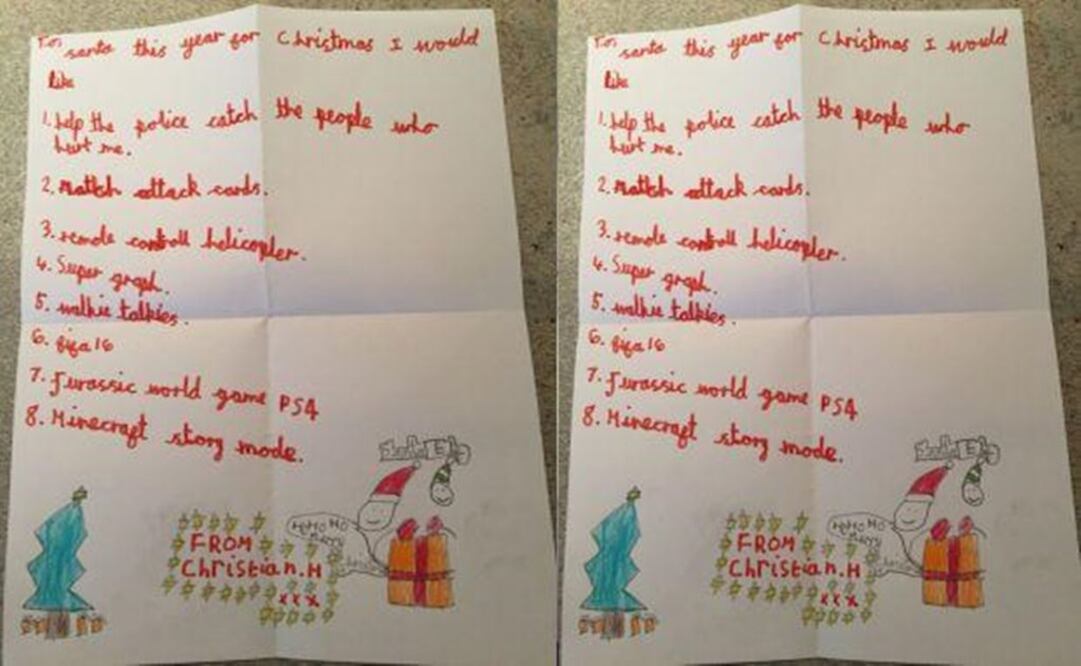 To santa this year for Christmas I would
like
1. help the police catch the people who
hurt me.
2. Match attack cards.
3. remote controll helicopter.
4. Super graph.
5. walkie talkies.
6. fifa 16
7. Jurassic world game PS4
8. Minecraft story mode.
HoHoHo
Merry
FROM
Christian.H
xxx
To santa this year for Christmas I would
like
1. help the police catch the people who
hurt me.
2. Match attack cards.
3. remote controll helicopter.
4. Super graph.
5. walkie talkies.
6. fifa 16
7. Jurassic world game PS4
8. Minecraft story mode.
HoHoHo
Merry
FROM
Christian.H
xxx